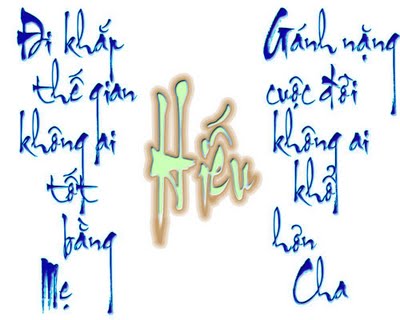 Đi khắp
thế gian
không ai
tốt
bằng
Mẹ
Hiếu
Gánh nặng
cuộc đời
không ai
khổ
hơn
Cha